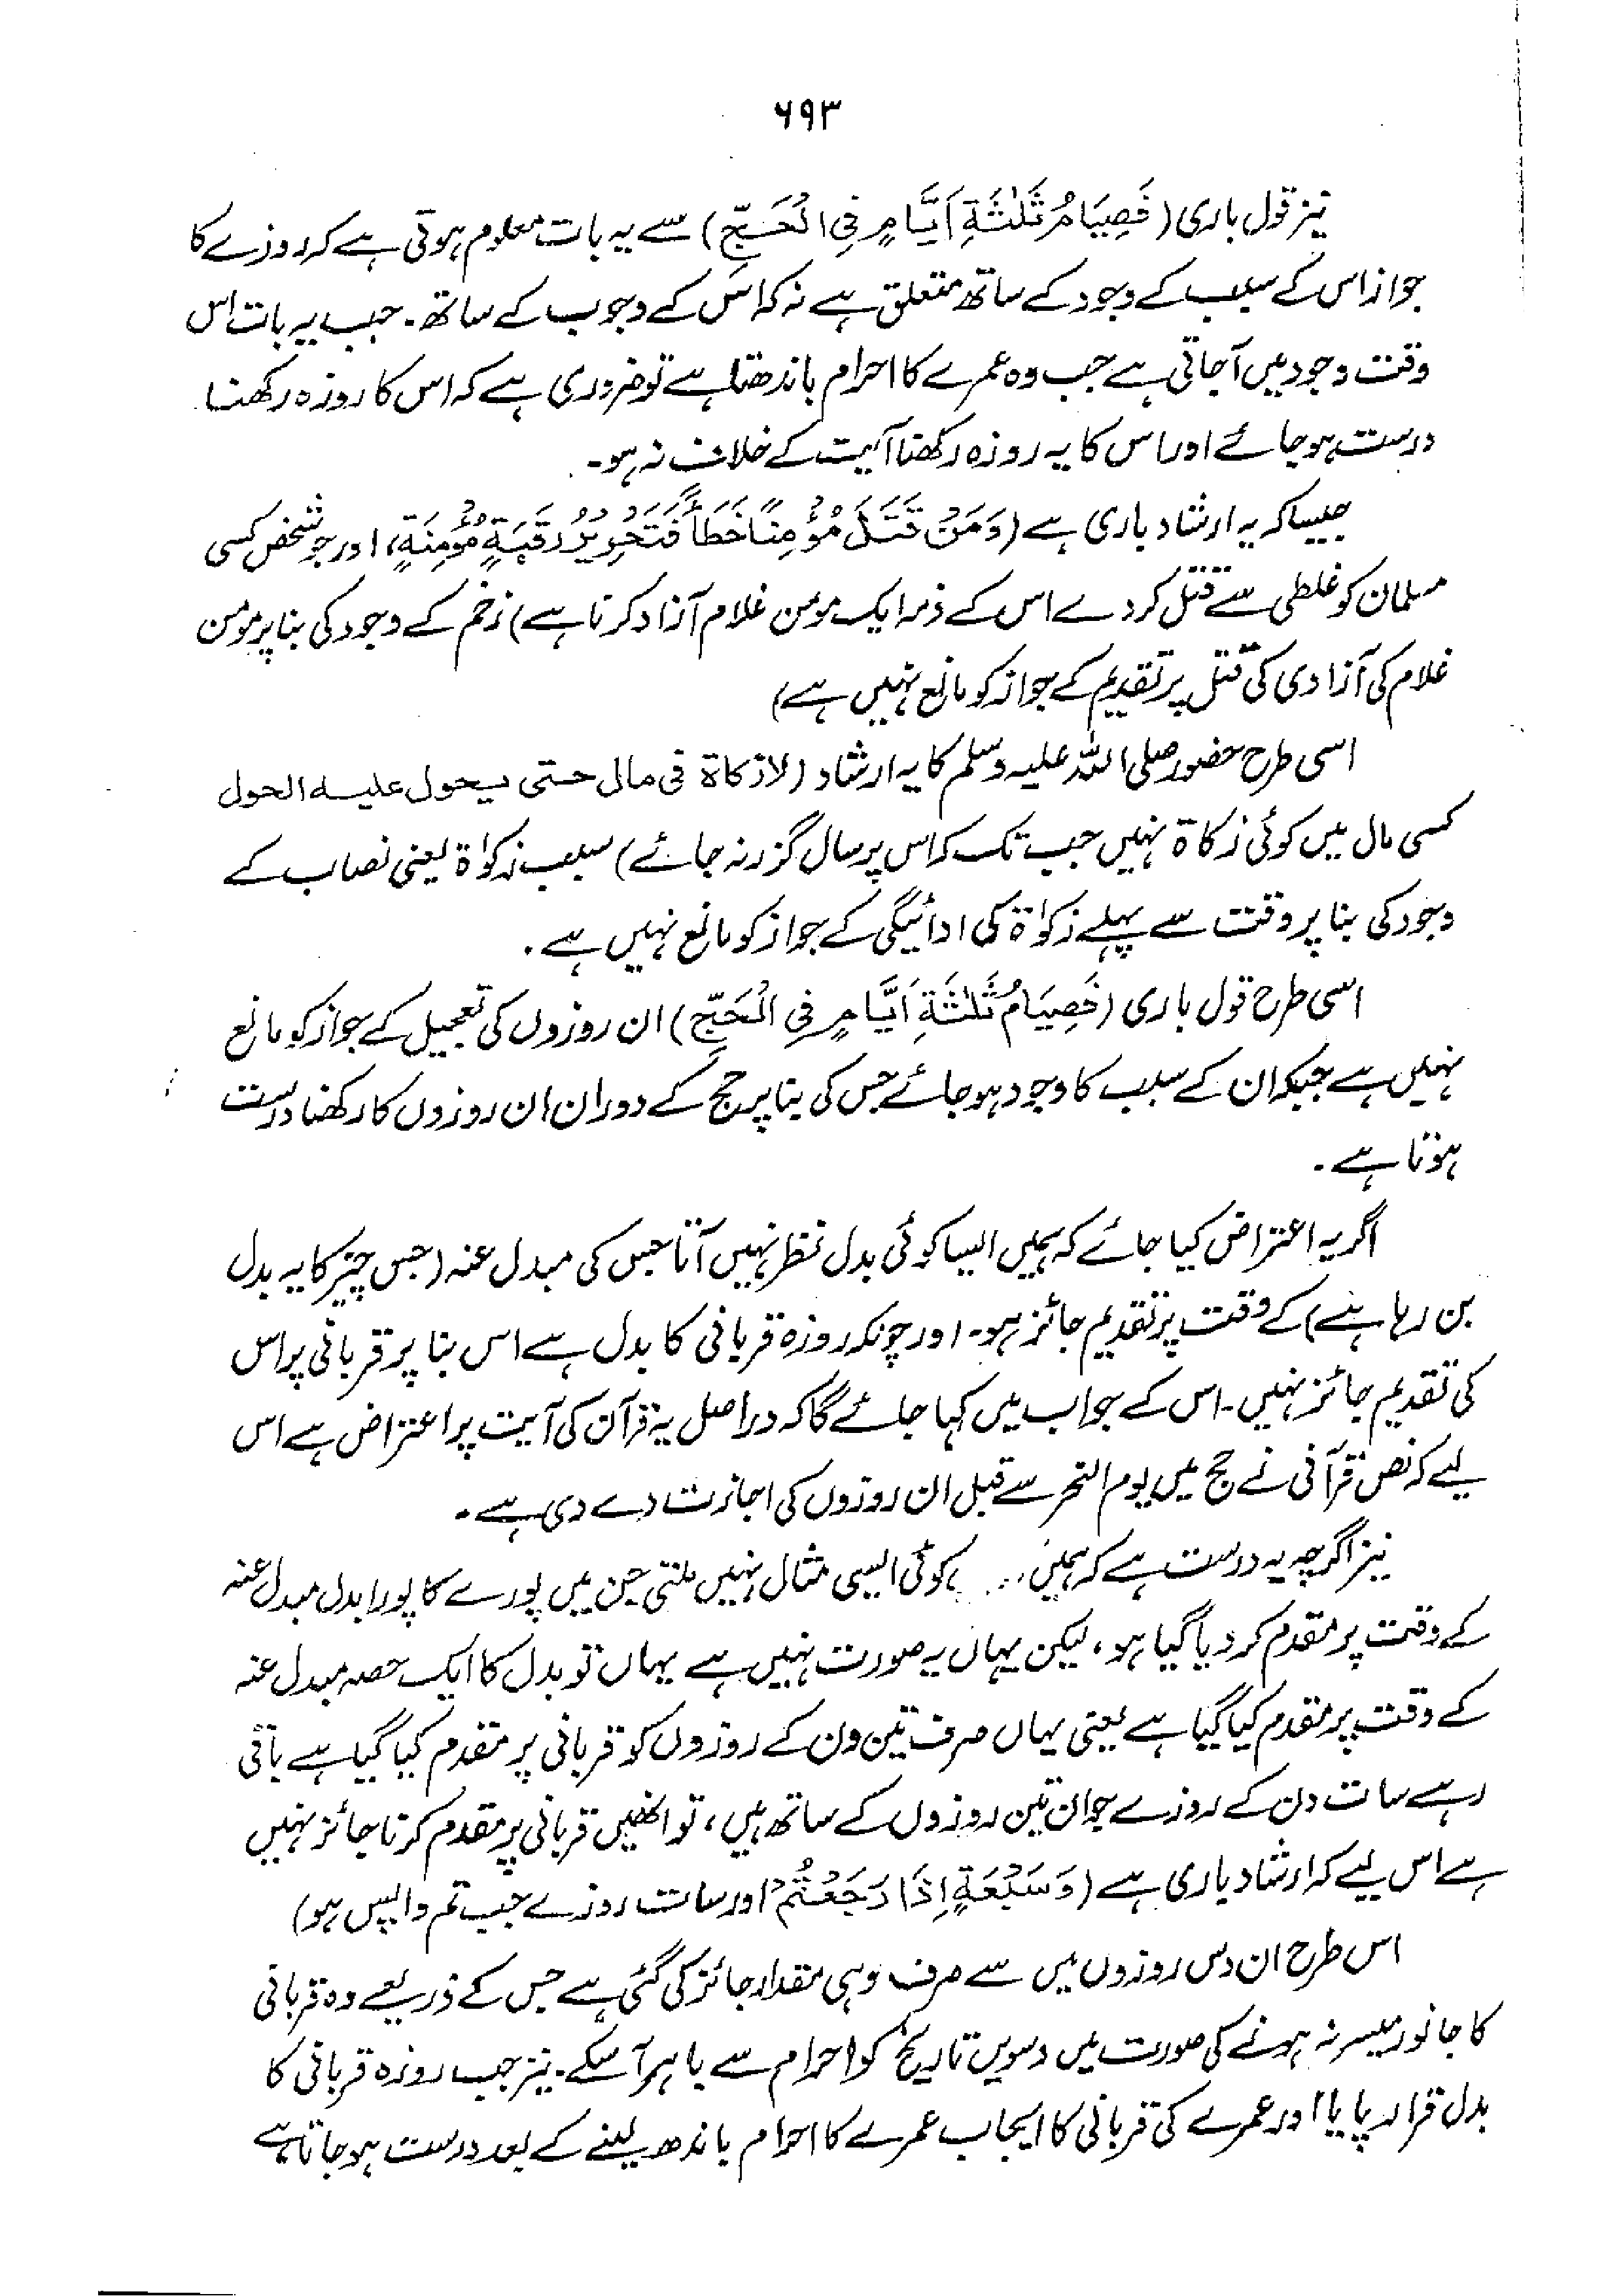 ۶۹۳
نیز قول باری (فَصِیَامُ ثَلٰثَۃِ اَیَّامٍ فِی الْحَجِّ) سے یہ بات معلوم ہوتی ہے کہ روزے کا
جواز اس کے سبب کے وجود کے ساتھ متعلق ہے نہ کہ اس کے وجوب کے ساتھ۔ جب یہ بات اس
وقت وجود میں آجاتی ہے جب وہ عمرے کا احرام باندھتا ہے تو ضروری ہے کہ اس کا روزہ رکھنا
درست ہو جائے اور اس کا یہ روزہ رکھنا آیت کے خلاف نہ ہو۔
جیسا کہ یہ ارشاد باری ہے (وَمَنْ قَتَلَ مُؤْمِنًا خَطَأً فَتَحْرِیْرُ رَقَبَۃٍ مُّؤْمِنَۃٍ، اور جو شخص کسی
مسلمان کو غلطی سے قتل کر دے اس کے ذمہ ایک مومن غلام آزاد کرنا ہے) زخم کے وجود کی بنا پر مومن
غلام کی آزادی کی قتل پر تقدیم کے جواز کو مانع نہیں ہے)
اسی طرح حضور صلی اللہ علیہ وسلم کا یہ ارشاد (لا زکاۃ فی مال حتی یحول علیہ الحول
کسی مال میں کوئی زکاۃ نہیں جب تک کہ اس پر سال گزر نہ جائے) سبب زکوٰۃ یعنی نصاب کے
وجود کی بنا پر وقت سے پہلے زکوٰۃ کی ادائیگی کے جواز کو مانع نہیں ہے۔
اسی طرح قول باری (فَصِیَامُ ثَلٰثَۃِ اَیَّامٍ فِی الْحَجِّ) ان روزوں کی تعجیل کے جواز کو مانع
نہیں ہے جبکہ ان کے سبب کا وجود ہو جائے جس کی بنا پر حج کے دوران ان روزوں کا رکھنا درست
ہوتا ہے۔
اگر یہ اعتراض کیا جائے کہ ہمیں ایسا کوئی بدل نظر نہیں آتا جس کی مبدل عنہ (جس چیز کا یہ بدل
بن رہا ہے) کے وقت پر تقدیم جائز ہو۔ اور چونکہ روزہ قربانی کا بدل ہے اس بنا پر قربانی پر اس
کی تقدیم جائز نہیں۔ اس کے جواب میں کہا جائے گا کہ دراصل یہ قرآن کی آیت پر اعتراض ہے اس
لیے کہ نص قرآنی نے حج میں یوم النحر سے قبل ان روزوں کی اجازت دے دی ہے۔
نیز اگرچہ یہ درست ہے کہ ہمیں کوئی ایسی مثال نہیں ملتی جن میں پورے کا پورا بدل مبدل عنہ
کے وقت پر مقدم کر دیا گیا ہو، لیکن یہاں یہ صورت نہیں ہے یہاں تو بدل کا ایک حصہ مبدل عنہ
کے وقت پر مقدم کیا گیا ہے یعنی یہاں صرف تین دن کے روزوں کو قربانی پر مقدم کیا گیا ہے باقی
رہے سات دن کے روزے جو ان تین روزوں کے ساتھ ہیں، تو انھیں قربانی پر مقدم کرنا جائز نہیں
ہے اس لیے کہ ارشاد باری ہے (وَسَبْعَۃٍ اِذَا رَجَعْتُمْ اور سات روزے جب تم واپس ہو)
اس طرح ان دس روزوں میں سے صرف وہی مقدار جائز کی گئی ہے جس کے ذریعے وہ قربانی
کا جانور میسر نہ ہونے کی صورت میں دسویں تاریخ کو احرام سے باہر آسکے۔ نیز جب روزہ قربانی کا
بدل قرار پایا اور عمرے کی قربانی کا ایجاب عمرے کا احرام باندھ لینے کے بعد درست ہو جاتا ہے